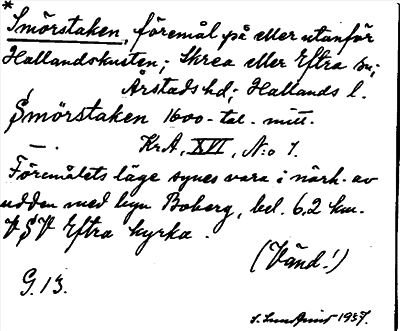 *
Smörstaken, föremål på eller utanför
Hallandskusten; Skrea eller Eftra sn;
Årstads hd; Hallands l.
Smörstaken 1600-tal. mitt.
— . KrA, XVI, N:o 1.
Föremålets läge synes vara i närh. av
udden med byn Boberg, bel. 6,2 km.
VSV Eftra kyrka.
(Vänd!)
G. 13.
S. Lundqvist 1937.